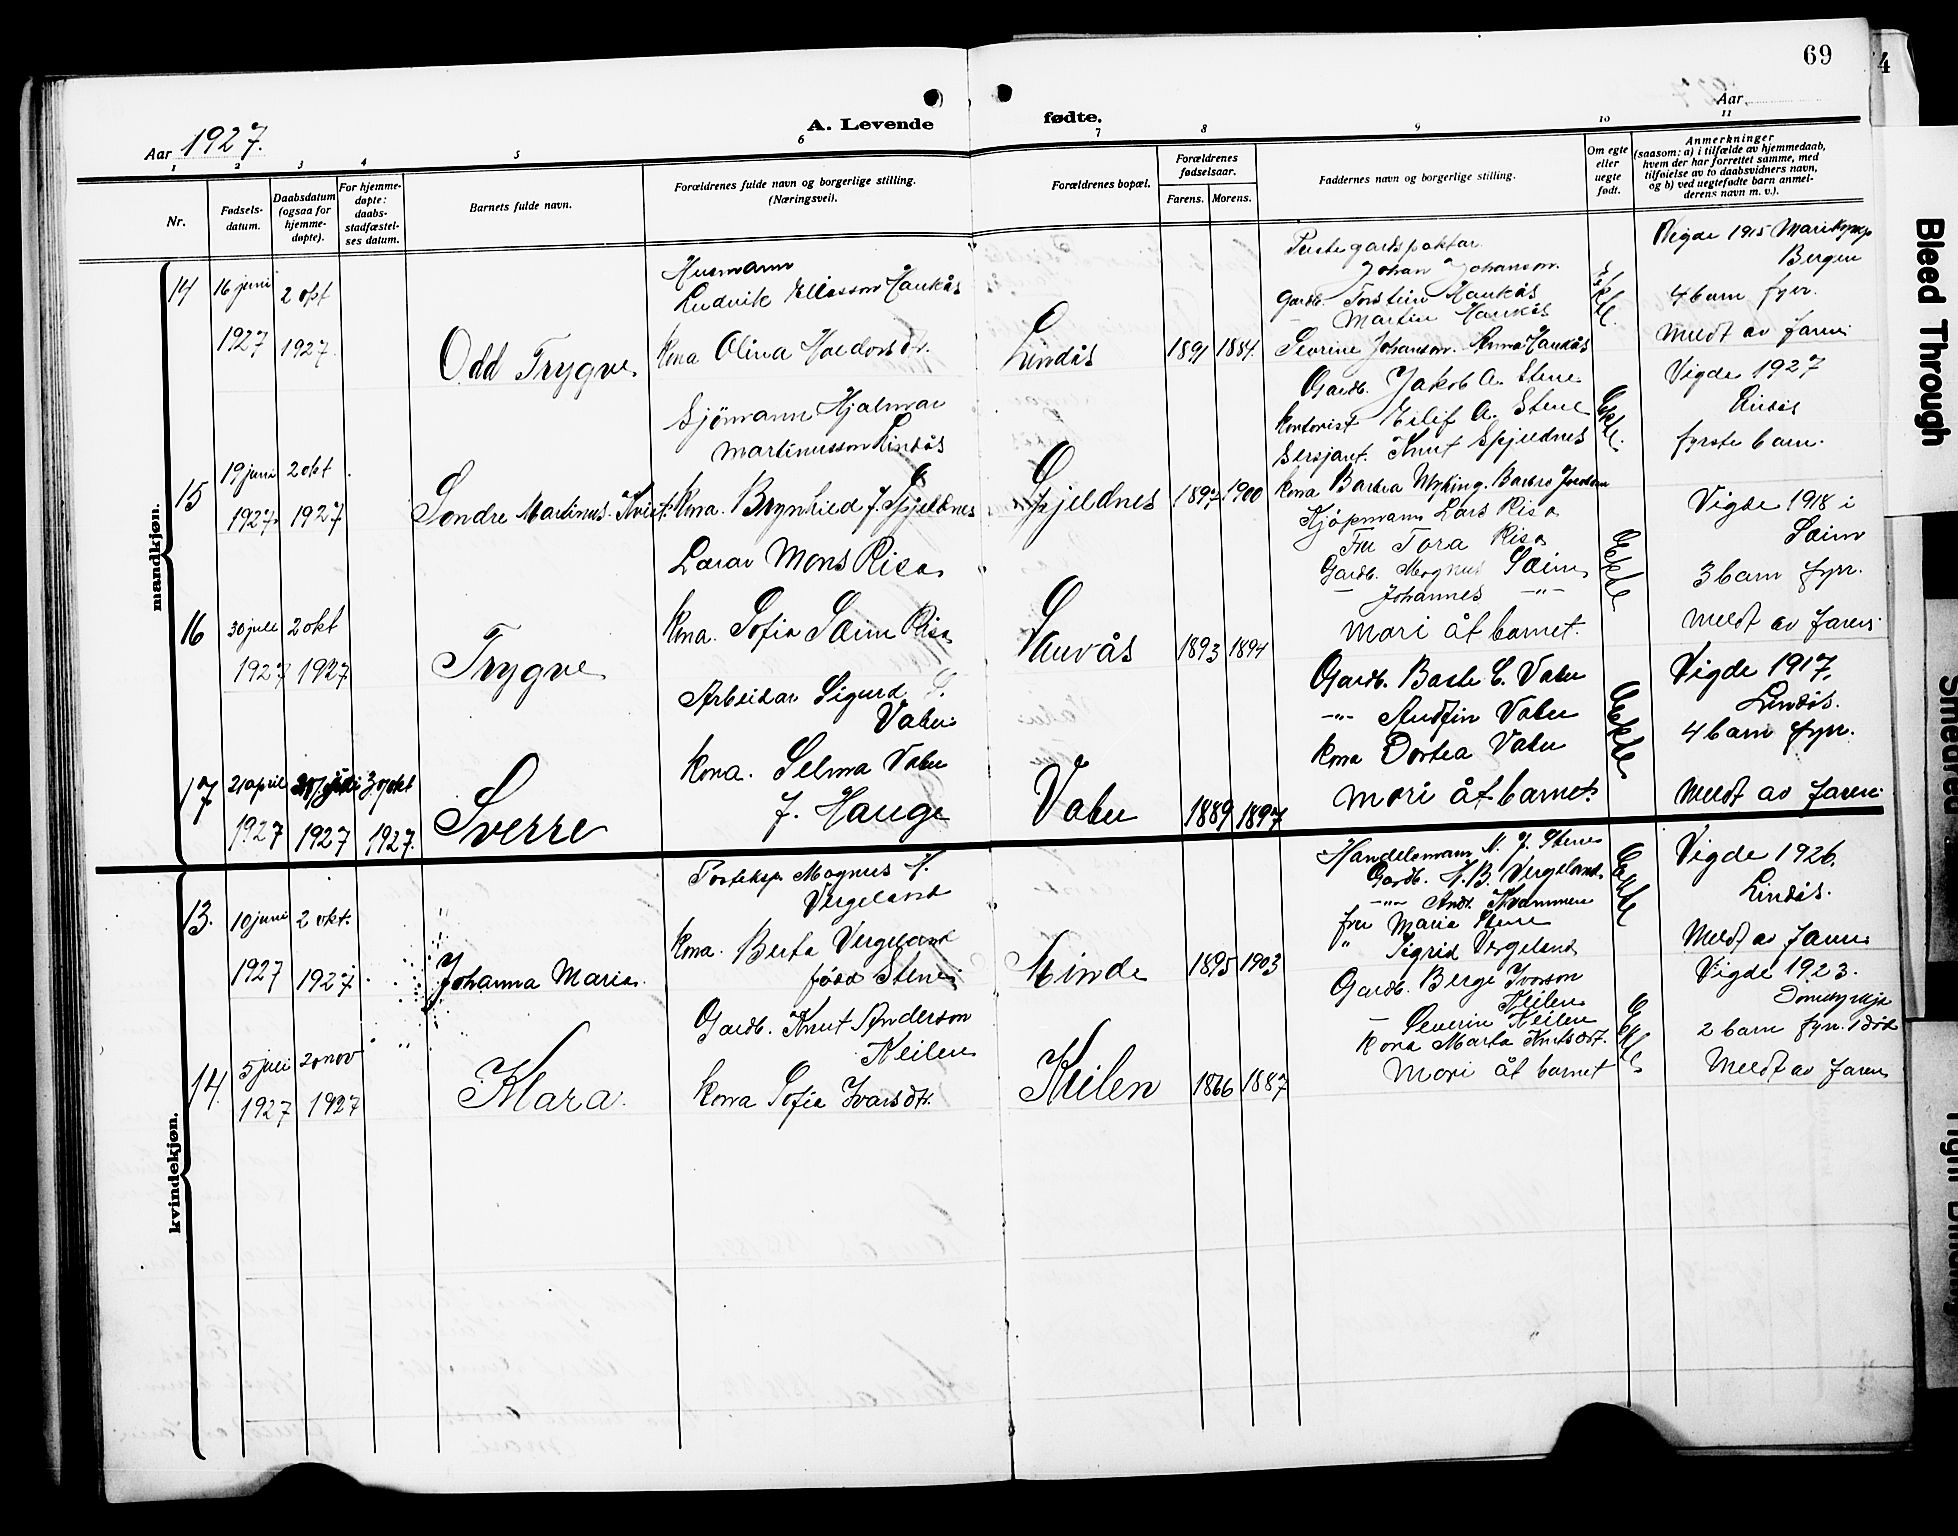 69
Aar 1927.
A. Levende fødte.
Aar
1 2 3 4 5 6 7 8 9 10 11
Nr.
Fødsels-
datum.
Daabsdatum
(ogsaa for
hjemme-
døpte).
For hjemme-
døpte:
daabs-
stadfæstel-
ses datum.
Barnets fulde navn.
Forældrenes fulde navn og borgerlige stilling.
(Næringsvei).
Forældrenes bopæl.
Forældrenes
fødselsaar.
Farens. Morens.
Faddernes navn og borgerlige stilling.
Om egte
eller
uegte
født.
Anmerkninger
(saasom: a) i tilfælde av hjemmedaab,
hvem der har forrettet samme, med
tilføielse av to daabsvidners navn,
og b) ved uegtefødte barn anmel-
derens navn m. v.).
mandkjøn.
14
16 juni
1927
2 okt
1927.
Odd Trygve
Husmann
Ludvik Eliasson Haukås
Kona Olina Haldorsdtr.
Lindås
1891 1884.
Johan Johanson.
Gardb. Torstein Haukås
— Martin Haukås
Severine Johanson. Anna Haukås
Ekte.
Vigde 1915 Marikyrkja
Bergen
4 barn fyrr.
Meldt av faren
15
19 juni
1927.
2 okt
1927
Sondre Martinus Kvist.
Sjömann Hjalmar
Martinusson Lindås
Kona. Brynhild J. Spjeldnes
Spjeldnes
1897. 1900
Gardb. Jakob A. Stene
Kontorist Eilif A. Stene
Sersjant. Knut Spjeldnes
Kona Barbra Myking.
Ekte.
Vigde 1927
Lindås
fyrste barn.
16
30 juli
1927
2 okt
1927
Trygve
Lærar Mons Risa
Kona. Sofia Sæim Risa
Sauvås
1893 1894
Kjöpmann Lars Risa
Fru Tora Risa
Gardb. Magnus Sæim
— Johannes —"—
Mori åt barnet.
Ekte
Vigde 1918 i
Sæim
3 barn fyrr.
Meldt av faren
17
21 april
1927
1927
30 okt
1927.
Sverre
Arbeidar Sigurd
Vabø
Kona. Selma Vabø
f. Hauge
Vabø
1889 1897
Gardb. Baste C. Vabø
—"— Audfin Vabø
Kona Dortea Vabø
Mori åt barnet.
Ekte
Vigde 1917.
Lindås.
4 barn fyrr.
Meldt av faren
kvindekjøn.
13.
10 juni
1927
2 okt.
1927.
Johanna Maria
Posteksp. Magnus H.
Vergeland
Kona. Berta Vergeland
född Stene
Minde
1895 1903
Handelsmann N. J. Stene
Gardb. H. B. Vergeland
—"— Andr. Kvammen
fru Maria Stene
" Sigrid Vergeland
Ekte
Vigde 1926.
Lindås.
Meldt av faren
14.
5 juli
1927
20 nov
1927
Klara.
Gardb. Knut Anderson
Keilen
Kona Sofia Ivarsdtr.
Keilen
1866 1887
Gardb. Berge Ivarson
Keilen
— Severin Keilen
Kona Marta Knutsdtr.
Mori åt barnet
Ekte
Vigde 1923.
Domkyrkja
2 barn fyrr. 1 död
Meldt av faren
4
Bleed Through
Smeared
Tight Binding